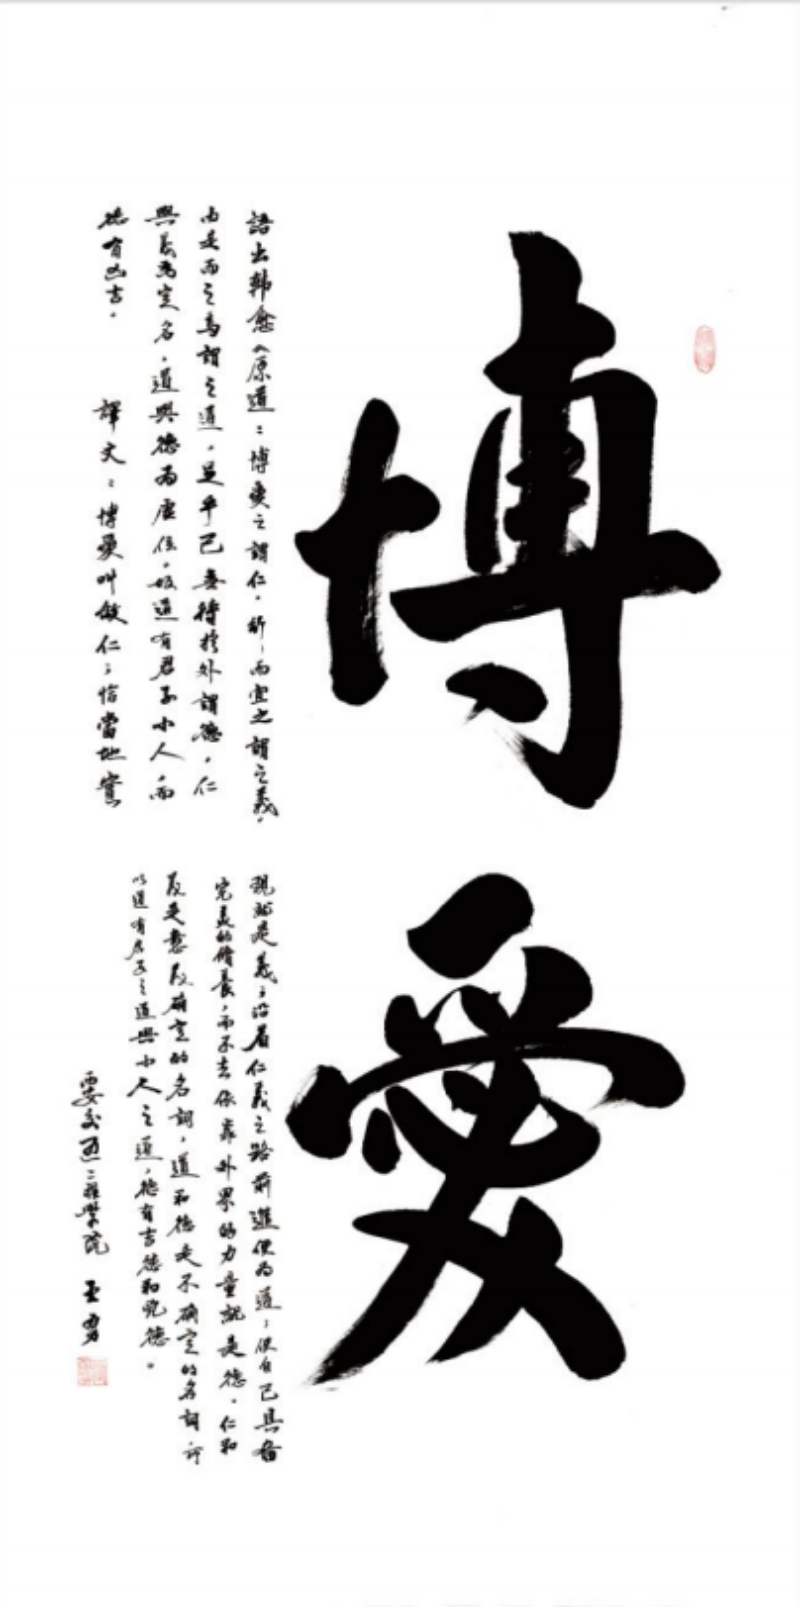 博愛
語出韩愈《原道：博愛之謂仁，所一而宜之謂之義，
由是而之焉謂之道，足乎己無待於外謂德，仁
與義為定名，道與德為虛位，故道有君子小人，而
德有凶吉。 譯文：博愛叫做仁；恰當地實
現就是義；沿着仁義之路前進便為道；使自己具备
完美的修養，而不去依靠外界的力量就是德。仁和
義是意義確定的名詞，道和德是不確定的名詞所
以道有君子之道與小人之道，德有吉德和凶德。
學院 王勇